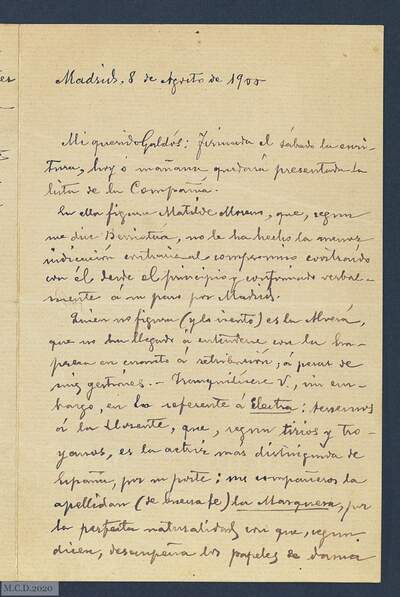 Madrid, 8 de Agosto de 1900
Mi querido Galdós: Firmada el sábado la escri-
tura, hoy ó mañana quedará presentada la
lista de la Compañía.
En ella figura Matilde Moreno, que, según
me dice Berriatúa, no le ha hecho la menor
indicación contraria al compromiso contraído
con él desde el principio y confirmado verbal-
mente á su paso por Madrid.
Quien no figura (y lo siento) es la Alverá,
que no ha llegado á entenderse con la Em-
presa en cuanto á retribución, á pesar de
mis gestiones.— Tranquilícese V., sin em-
bargo, en lo referente á Electra: tenemos
á la Llorente, que, según tirios y tro-
yanos, es la actriz mas distinguida de
España, por su porte; sus compañeros la
apellidan (de buena fe) la Marquesa, por
la perfecta naturalidad con que, según
dicen, desempeña los papeles de dama
M.C.D.2020